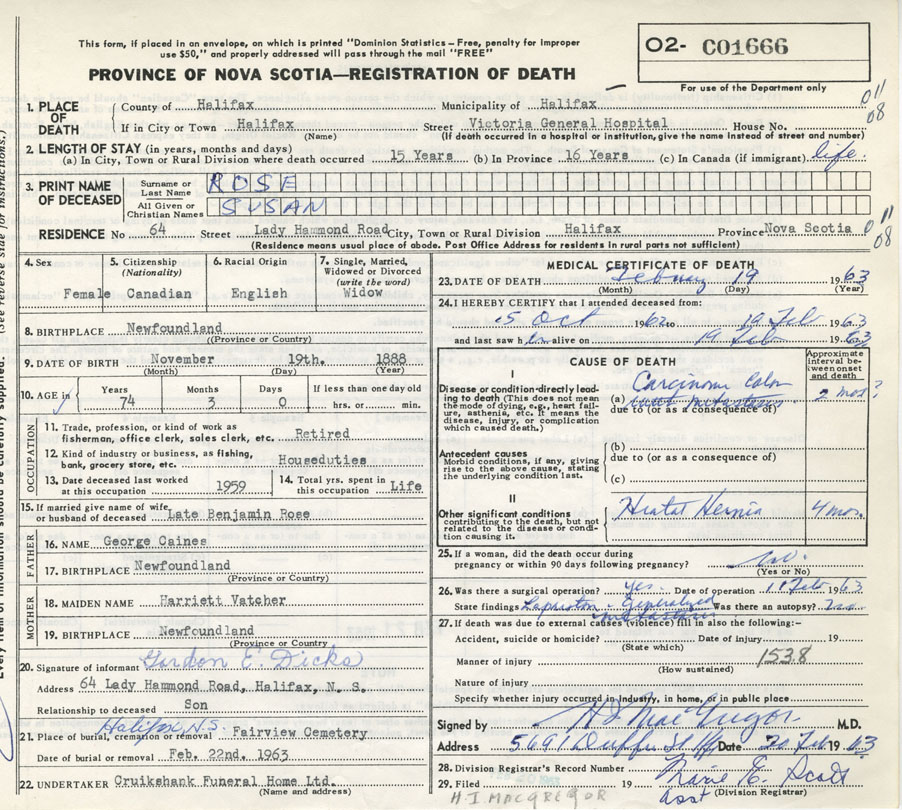 This form, if placed in an envelope, on which is printed "Dominion Statistics—Free, penalty for improper
use $50," and properly addressed will pass through the mail "FREE"
O2- C01666
For use of the Department only
PROVINCE OF NOVA SCOTIA—REGISTRATION OF DEATH
1. PLACE OF DEATH
County of Halifax Municipality of Halifax 011
If in City or Town Halifax (Name) Street Victoria General Hospital House No. 08
(If death occurred in a hospital or institution, give the name instead of street and number)
2. LENGTH OF STAY (in years, months and days)
(a) In City, Town or Rural Division where death occurred 15 Years (b) In Province 16 Years (c) In Canada (if immigrant) life.
3. PRINT NAME OF DECEASED
Surname or Last Name ROSE
All Given or Christian Names SUSAN
RESIDENCE No 64 Street Lady Hammond Road City, Town or Rural Division Halifax Province Nova Scotia 011 08
(Residence means usual place of abode. Post Office Address for residents in rural parts not sufficient)
4. Sex
Female
5. Citizenship (Nationality)
Canadian
6. Racial Origin
English
7. Single, Married, Widowed or Divorced (write the word)
Widow
8. BIRTHPLACE Newfoundland
(Province or Country)
9. DATE OF BIRTH November 19th. 1888
(Month) (Day) (Year)
10. AGE in Years 74 Months 3 Days 0 If less than one day old hrs. or min.
OCCUPATION
11. Trade, profession, or kind of work as fisherman, office clerk, sales clerk, etc. Retired
12. Kind of industry or business, as fishing, bank, grocery store, etc. Houseduties
13. Date deceased last worked at this occupation 1959
14. Total yrs. spent in this occupation Life
15. If married give name of wife or husband of deceased Late Benjamin Rose
FATHER
16. NAME George Caines
17. BIRTHPLACE Newfoundland
(Province or Country)
MOTHER
18. MAIDEN NAME Harriett Vatcher
19. BIRTHPLACE Newfoundland
(Province or Country
20. Signature of informant Gordon E. Dicks
Address 64 Lady Hammond Road, Halifax, N. S.
Relationship to deceased Son
Halifax, N.S.
21. Place of burial, cremation or removal Fairview Cemetery
Date of burial or removal Feb. 22nd. 1963
22. UNDERTAKER Cruikshank Funeral Home Ltd.
(Name and address)
MEDICAL CERTIFICATE OF DEATH
23. DATE OF DEATH February 19 1963
(Month) (Day) (Year)
24. I HEREBY CERTIFY that I attended deceased from:
5 Oct 1962 to 19 Feb 1963
and last saw h alive on 19 Feb 1963
CAUSE OF DEATH
Approximate interval between onset and death
I
Disease or condition directly leading to death (This does not mean the mode of dying, e.g., heart failure, asthenia, etc. It means the disease, injury, or complication which caused death.)
(a) Carcinoma Colon 2 mos?
due to (or as a consequence of)
Antecedent causes
Morbid conditions, if any, giving rise to the above cause, stating the underlying condition last.
(b)
due to (or as a consequence of)
(c)
II
Other significant conditions contributing to the death, but not related to the disease or condition causing it.
Hiatal Hernia 4 mos.
25. If a woman, did the death occur during pregnancy or within 90 days following pregnancy? no.
(Yes or No)
26. Was there a surgical operation? yes. Date of operation 11 Feb 1963
State findings Generalized Was there an autopsy? no
27. If death was due to external causes (violence) fill in also the following:-
Accident, suicide or homicide? Date of injury 19
(State which)
Manner of injury 153.8
(How sustained)
Nature of injury
Specify whether injury occurred in Industry, in home, or in public place
Signed by H I MacGregor M.D.
Address Date 20 Feb 1963
28. Division Registrar's Record Number
29. Filed 19 Marie E. Scott
(Division Registrar)
Asst
H.I. MACGREGOR